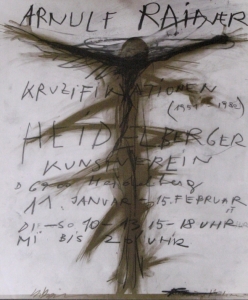 ARNULF RAINER
KRUZIFIKATIONEN
(1951-1980)
HEIDELBERGER
KUNSTVEREIN
D 6900 Heidelberg
11. JANUAR - 15. FEBRUAR
DI.-SO. 10-13, 15-18 UHR
MI BIS 20 UHR